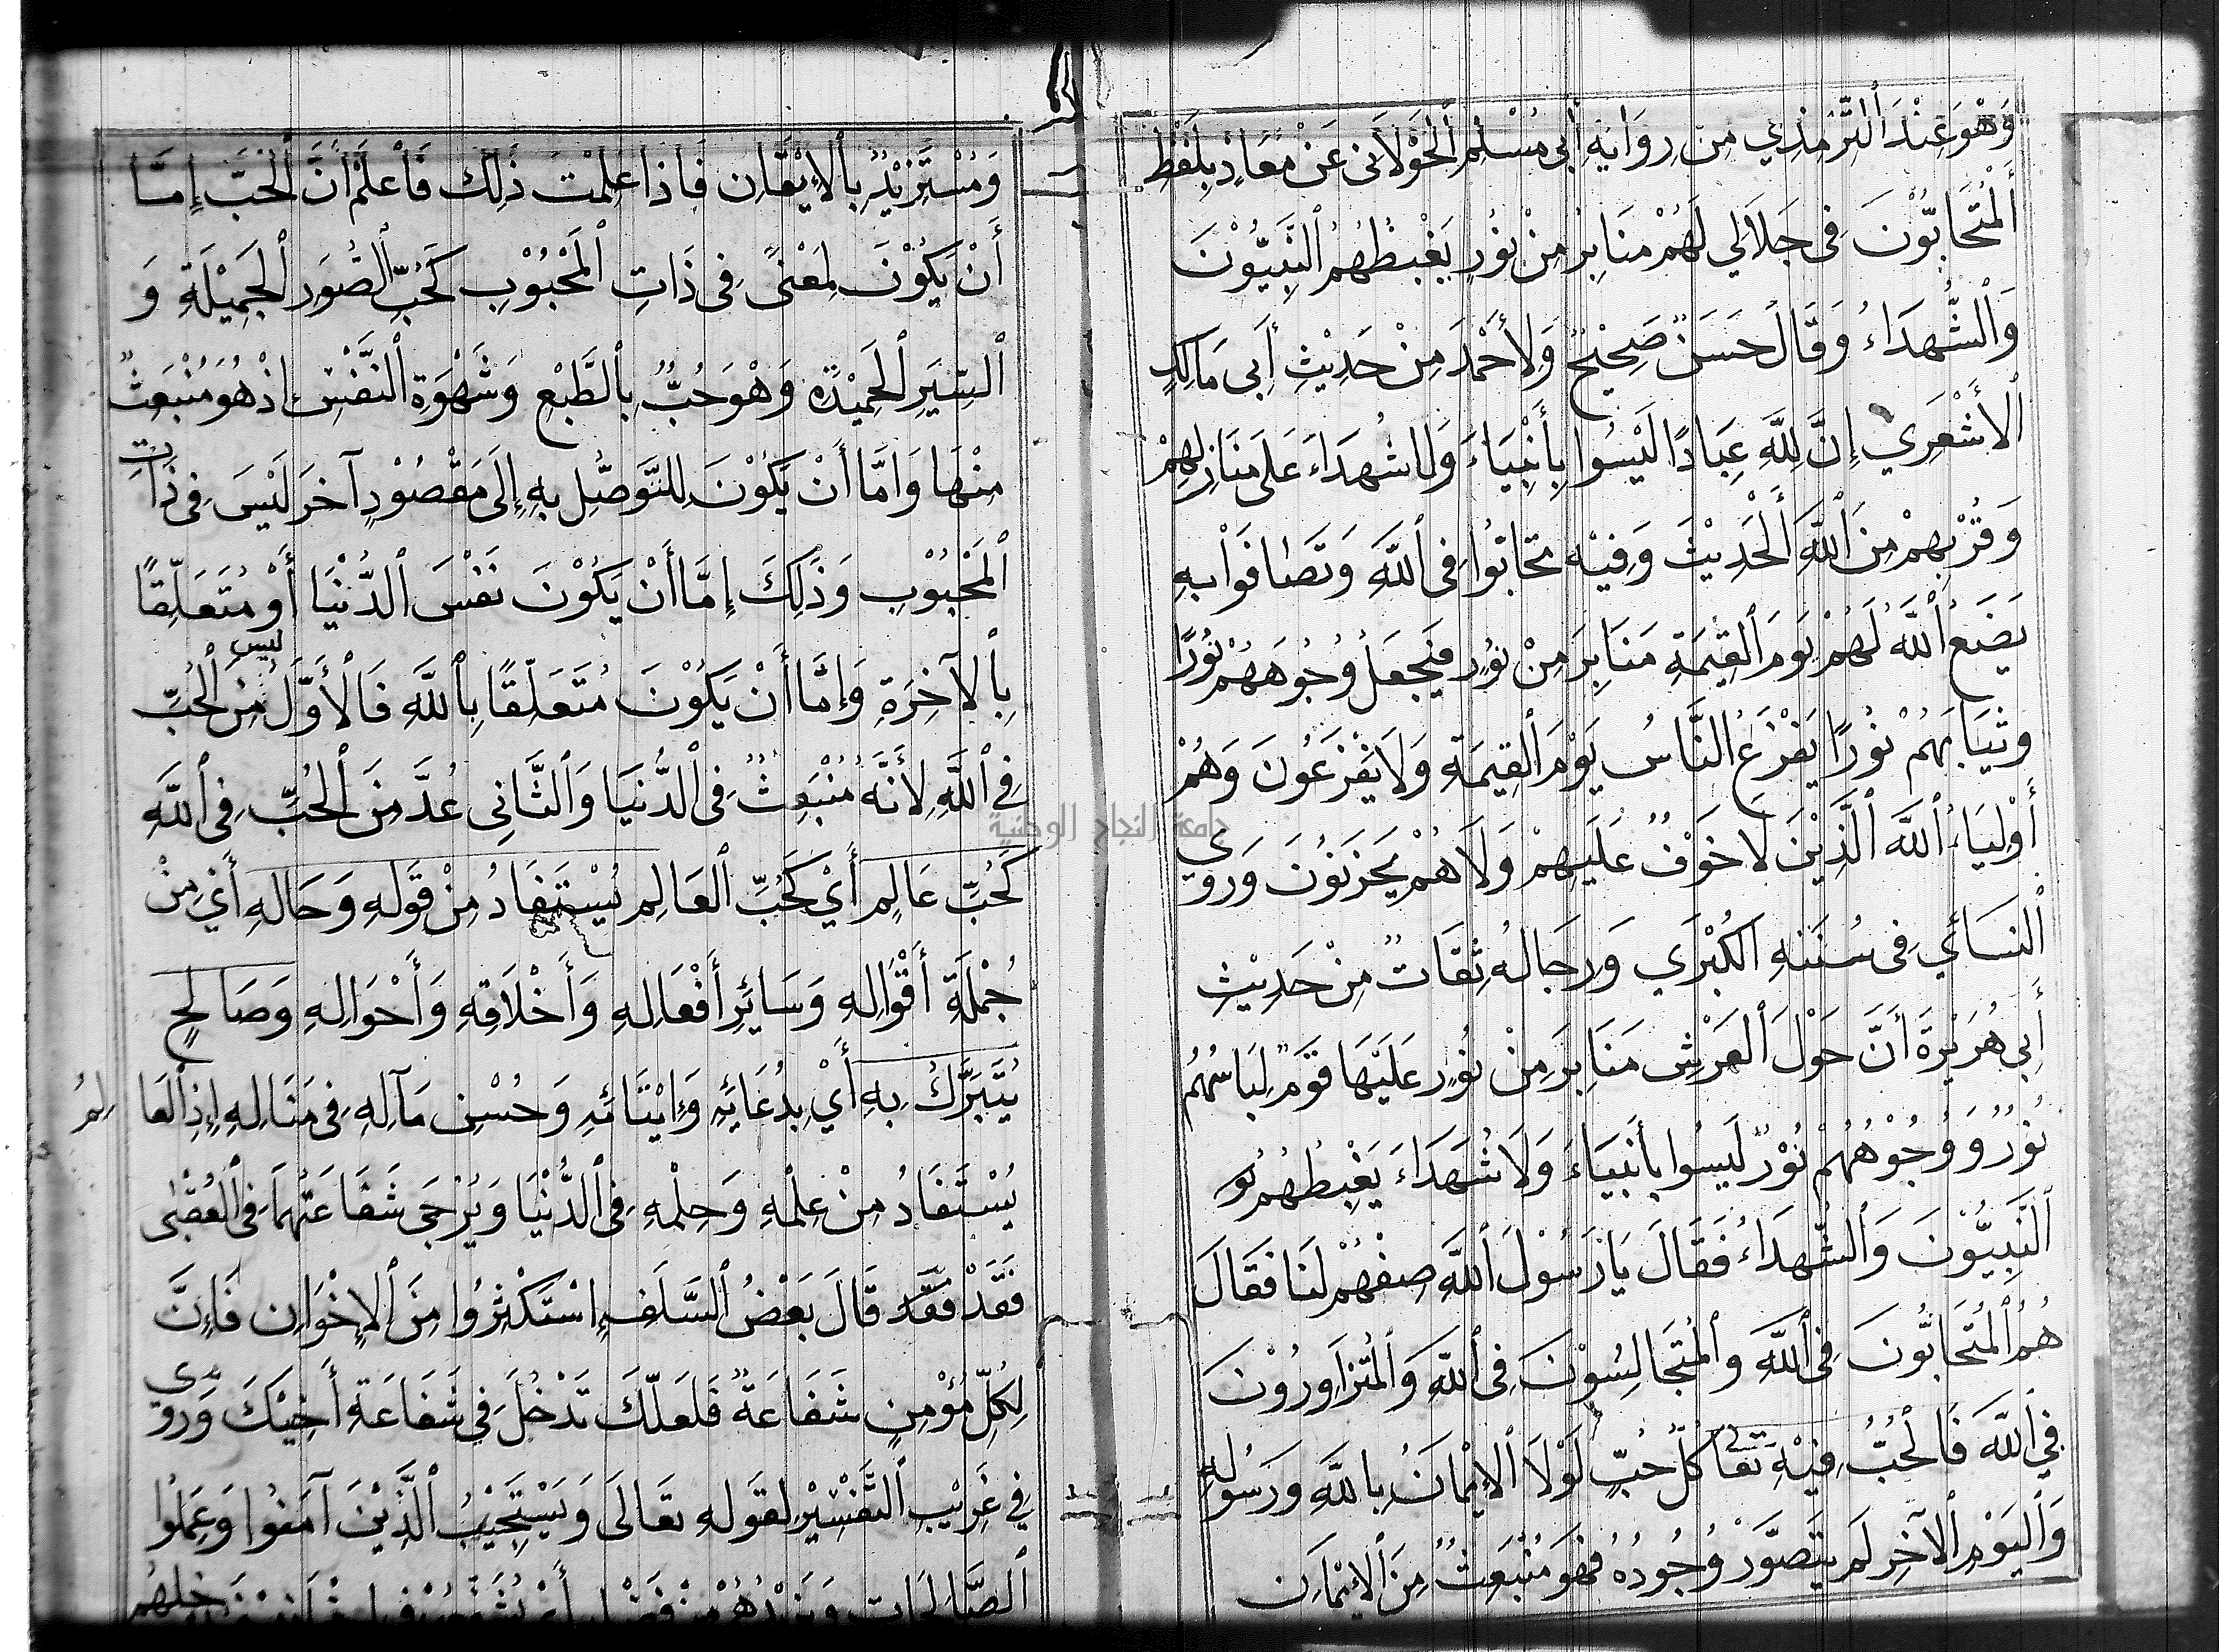 وَهُوَ عِنْدَ ٱلتِّرْمِذِي مِنْ رِوَايَةِ أَبِي مُسْلِمٍ ٱلْخَوْلَانِي عَنْ مُعَاذٍ بِلَفْظِ
ٱلْمُتَحَابُّوْنَ فِي جَلَالِي لَهُمْ مَنَابِرُ مِنْ نُوْرٍ يَغْبِطُهُمُ ٱلنَّبِيُّوْنَ
وَٱلشُّهَدَاءُ وَقَالَ حَسَنٌ صَحِيْحٌ وَلِأَحْمَدَ مِنْ حَدِيْثِ أَبِي مَالِكٍ
ٱلْأَشْعَرِي إِنَّ لِلَّهِ عِبَادًا لَيْسُوا بِأَنْبِيَاءَ وَلَا شُهَدَاءَ عَلَى مَنَازِلِهِمْ
وَقُرْبِهِمْ مِنَ ٱللَّهِ ٱلْحَدِيْثَ وَفِيْهِ تَحَابُّوا فِي ٱللَّهِ وَتَصَافَوْا بِهِ
يَضَعُ ٱللَّهُ لَهُمْ يَوْمَ ٱلْقِيٰمَةِ مَنَابِرَ مِنْ نُوْرٍ فَيَجْعَلُ وُجُوهَهُمْ نُوْرًا
وَثِيَابَهُمْ نُوْرًا يَفْزَعُ ٱلنَّاسُ يَوْمَ ٱلْقِيٰمَةِ وَلَا يَفْزَعُونَ وَهُمْ
أَوْلِيَاءُ ٱللَّهِ ٱلَّذِيْنَ لَا خَوْفٌ عَلَيْهِمْ وَلَا هُمْ يَحْزَنُوْنَ وَرَوَى
ٱلنَّسَائِي فِي سُنَنِهِ ٱلْكُبْرَي وَرِجَالُهُ ثِقَاتٌ مِنْ حَدِيْثِ
أَبِي هُرَيْرَةَ أَنَّ حَوْلَ ٱلْعَرْشِ مَنَابِرَ مِنْ نُوْرٍ عَلَيْهَا قَوْمٌ لِبَاسُهُمْ
نُوْرٌ وَوُجُوْهُهُمْ نُوْرٌ لَيْسُوا بِأَنْبِيَاءَ وَلَا شُهَدَاءَ يَغْبِطُهُمُ
ٱلنَّبِيُّوْنَ وَٱلشُّهَدَاءُ فَقَالَ يَا رَسُوْلَ ٱللَّهِ صِفْهُمْ لَنَا فَقَالَ
هُمُ ٱلْمُتَحَابُّونَ فِي ٱللَّهِ وَٱلْمُتَجَالِسُوْنَ فِي ٱللَّهِ وَٱلْمُتَزَاوِرُوْنَ
فِي ٱللَّهِ فَٱلْحُبُّ فِيْهِ تَعَالَى كُلُّ حُبٍّ لَوْلَا ٱلْإِيْمَانُ بِاللَّهِ وَرَسُوْلِهِ
وَٱلْيَوْمِ ٱلْآخِرِ لَمْ يَتَصَوَّرْ وُجُودُهُ فَهُوَ مُنْبَعِثٌ مِنَ ٱلْإِيْمَانِ
وَمُسْتَزِيْدٌ بِٱلْإِيْقَانِ فَإِذَا عَلِمْتَ ذٰلِكَ فَٱعْلَمْ أَنَّ ٱلْحُبَّ إِمَّا
أَنْ يَكُوْنَ لِمَعْنًى فِي ذَاتِ ٱلْمَحْبُوْبِ كَحُبِّ ٱلصُّوَرِ ٱلْجَمِيْلَةِ وَ
ٱلسِّيَرِ ٱلْحَمِيْدَةِ وَهُوَ حُبٌّ بِالطَّبْعِ وَشَهْوَةِ ٱلنَّفْسِ إِذْ هُوَ مُنْبَعِثٌ
مِنْهَا وَإِمَّا أَنْ يَكُوْنَ لِلتَّوَصُّلِ بِهِ إِلَى مَقْصُوْدٍ آخَرَ لَيْسَ فِي ذَاتِ
ٱلْمَحْبُوْبِ وَذٰلِكَ إِمَّا أَنْ يَكُوْنَ نَفْسَ ٱلدُّنْيَا أَوْ مُتَعَلِّقًا
بِٱلْآخِرَةِ وَإِمَّا أَنْ يَكُوْنَ مُتَعَلِّقًا بِٱللَّهِ فَالْأَوَّلُ لَيْسَ مِنَ ٱلْحُبِّ
فِي ٱللَّهِ لِأَنَّهُ مُنْبَعِثٌ فِي ٱلدُّنْيَا وَٱلثَّانِي عُدَّ مِنَ ٱلْحُبِّ فِي ٱللَّهِ
كَحُبِّ عَالِمٍ أَيْ كَحُبِّ ٱلْعَالِمِ يُسْتَفَادُ مِنْ قَوْلِهِ وَحَالِهِ أَيْ مِنْ
جُمْلَةِ أَقْوَالِهِ وَسَائِرِ أَفْعَالِهِ وَأَخْلَاقِهِ وَأَحْوَالِهِ وَصَالِحٍ
يُتَبَرَّكُ بِهِ أَيْ بِدُعَائِهِ وَإِيْتَائِهِ وَحُسْنِ مَآلِهِ فِي مَنَالِهِ إِذِ ٱلْعَالِمُ
يُسْتَفَادُ مِنْ عِلْمِهِ وَحِلْمِهِ فِي ٱلدُّنْيَا وَيُرْجَى شَفَاعَتُهُمَا فِي ٱلْعُقْبٰى
فَقَدْ فَقَدْ قَالَ بَعْضُ ٱلسَّلَفِ اسْتَكْثِرُوا مِنَ ٱلْإِخْوَانِ فَإِنَّ
لِكُلِّ مُؤْمِنٍ شَفَاعَةٌ فَلَعَلَّكَ تَدْخُلُ فِي شَفَاعَةِ أَخِيْكَ وَرُوِيَ
فِي غَرِيْبِ ٱلتَّفْسِيْرِ لِقَوْلِهِ تَعَالَى وَيَسْتَجِيْبُ ٱلَّذِيْنَ آمَنُوا وَعَمِلُوا
ٱلصَّالِحَاتِ وَيَزِيْدُهُمْ مِنْ فَضْلِهِ
جامعة النجاح الوطنية